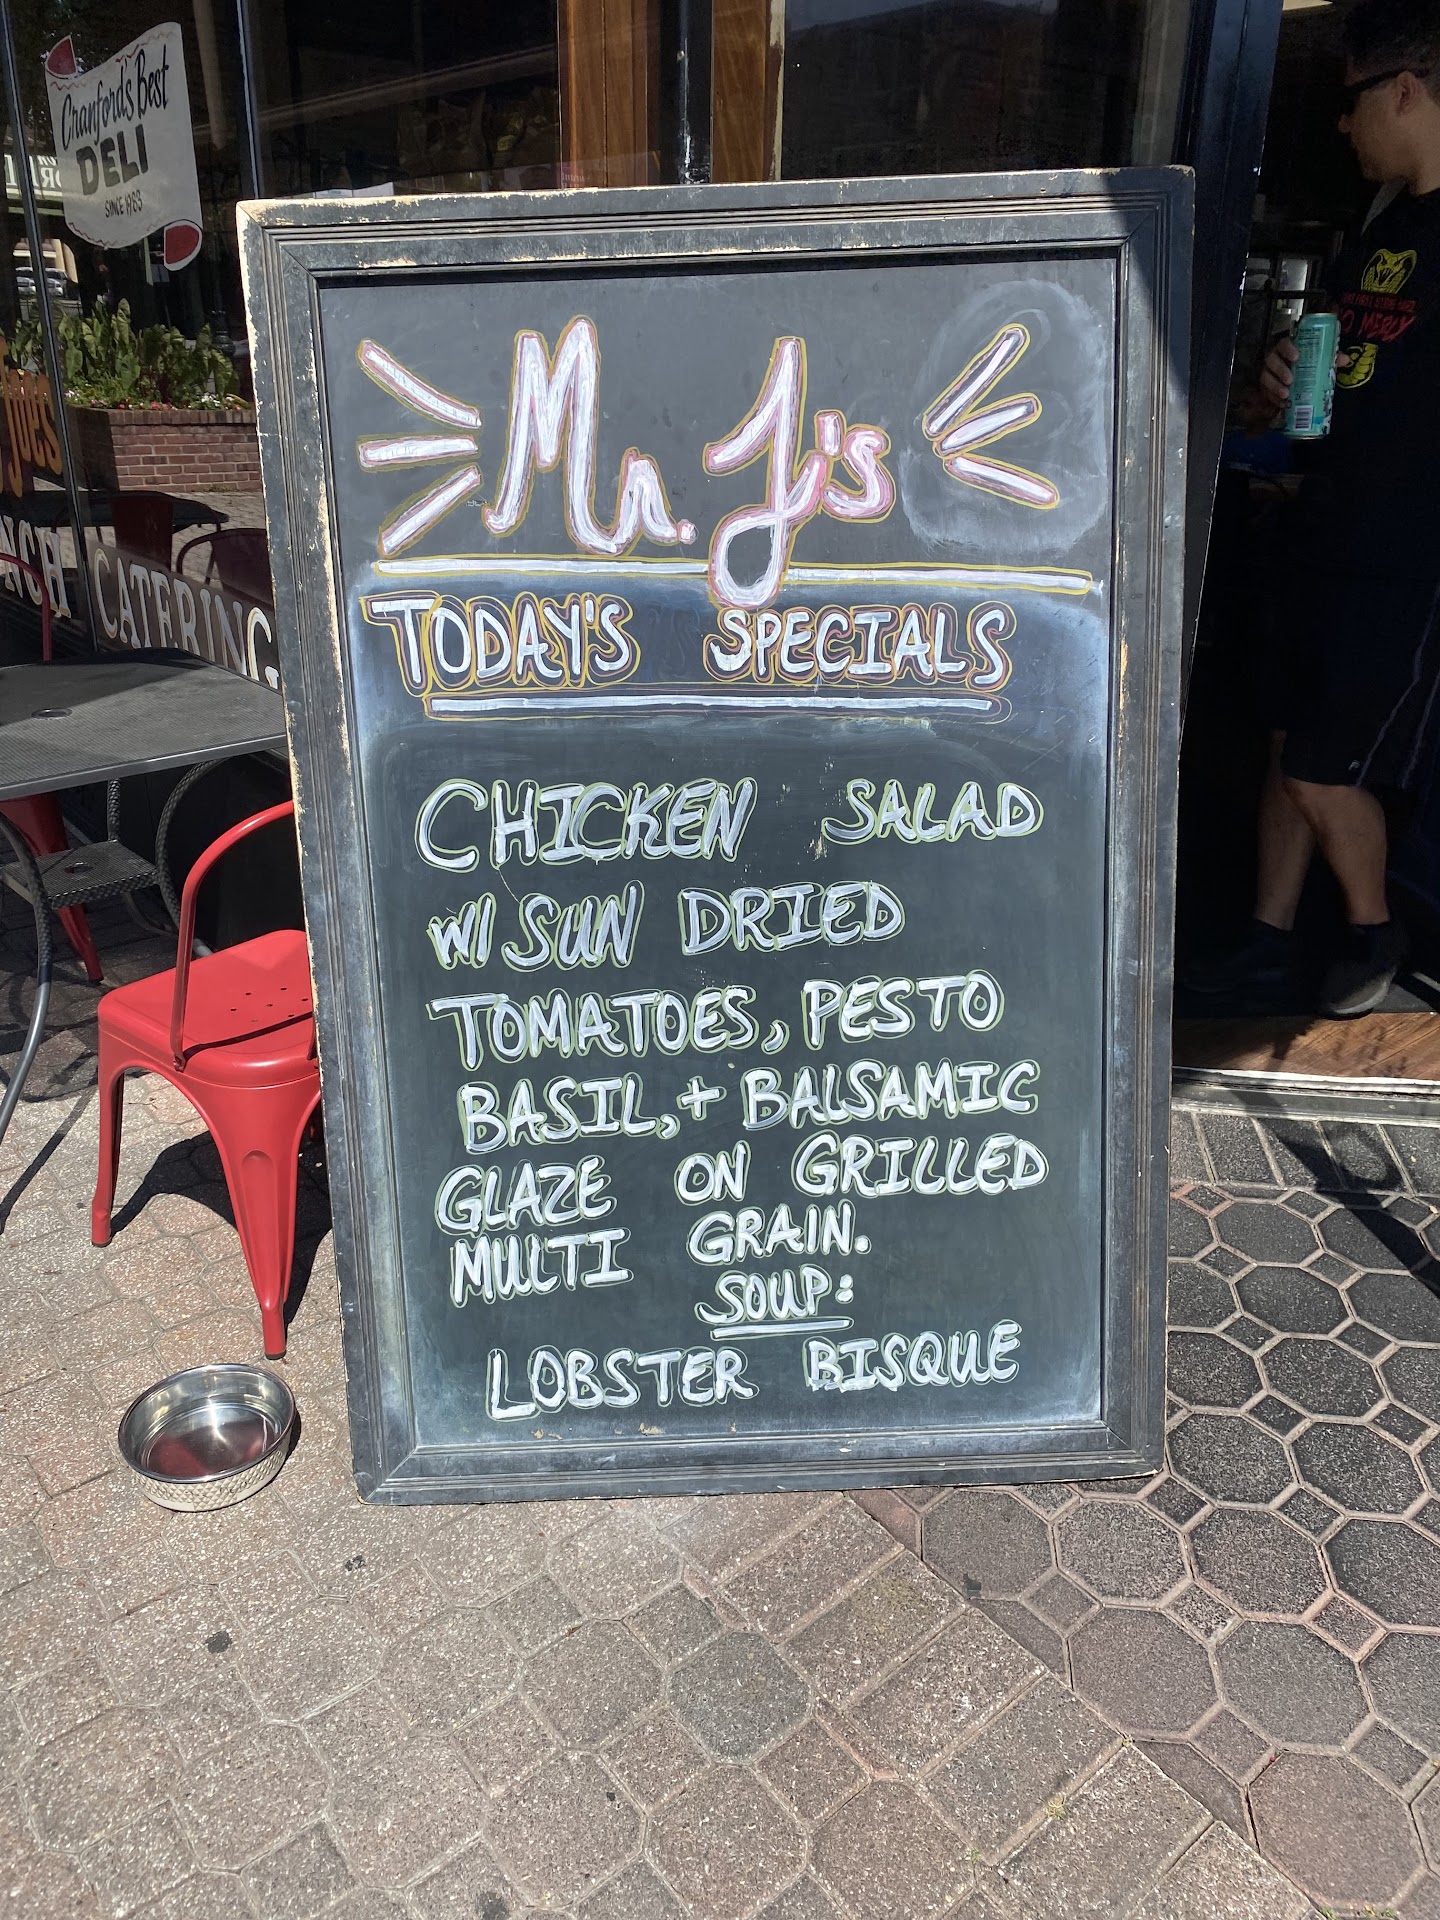 Cranford's Best
DELI
SINCE 1983
Joe's
CATERING
Mr. J's
TODAY'S SPECIALS
CHICKEN SALAD
W/ SUN DRIED
TOMATOES, PESTO
BASIL, + BALSAMIC
GLAZE ON GRILLED
MULTI GRAIN.
SOUP:
LOBSTER BISQUE
MERCY